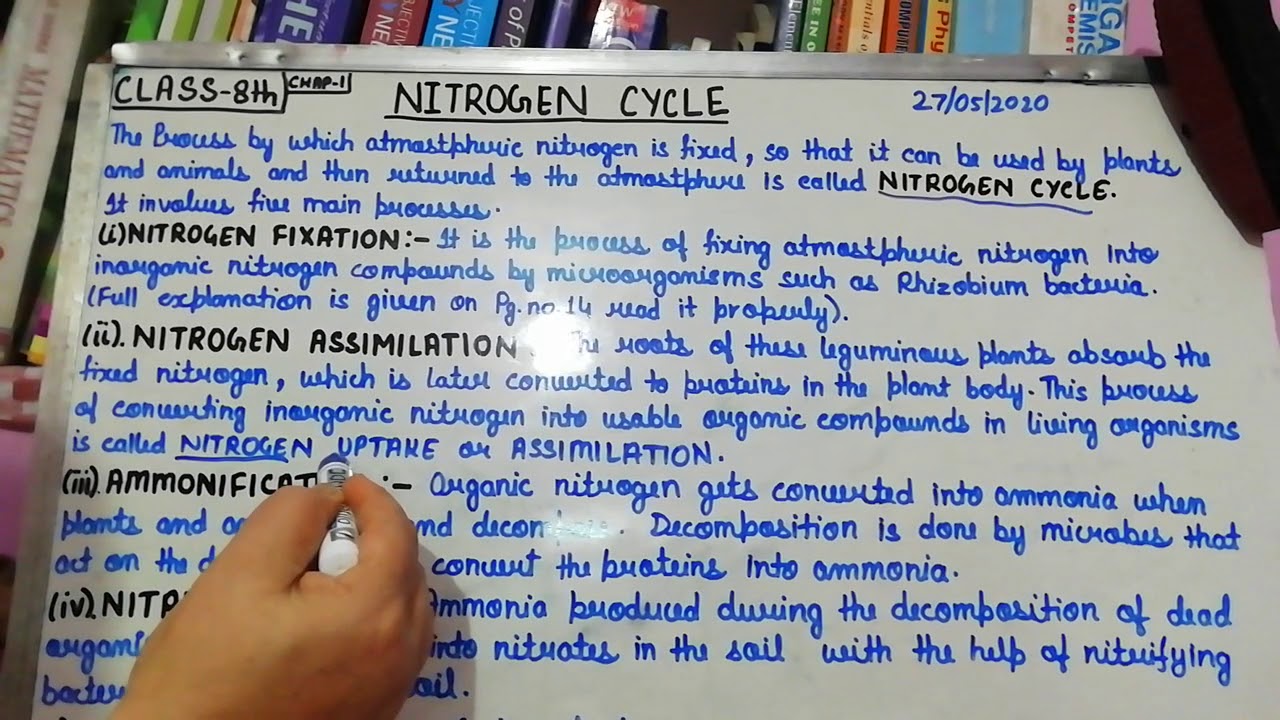 MATHEMATICS
THE
NEW
CLASS-8th CHAP-1 NITROGEN CYCLE 27/05/2020
The Process by which atmostpheric nitrogen is fixed, so that it can be used by plants
and animals and then returned to the atmostphere is called NITROGEN CYCLE.
It involves five main processes.
(i) NITROGEN FIXATION:- It is the process of fixing atmostpheric nitrogen into
inorganic nitrogen compounds by microorganisms such as Rhizobium bacteria.
(Full explanation is given on Pg. no. 14 read it properly).
(ii). NITROGEN ASSIMILATION The roots of these leguminous plants absorb the
fixed nitrogen, which is later converted to proteins in the plant body. This process
of converting inorganic nitrogen into usable organic compounds in living organisms
is called NITROGEN UPTAKE or ASSIMILATION.
(iii). AMMONIFICAT :- Organic nitrogen gets converted into ammonia when
plants and nd decom . Decomposition is done by microbes that
act on the d convert the proteins into ammonia.
(iv). NIT mmonia produced during the decomposition of dead
organi into nitrates in the soil with the help of nitrifying
bacter oil.